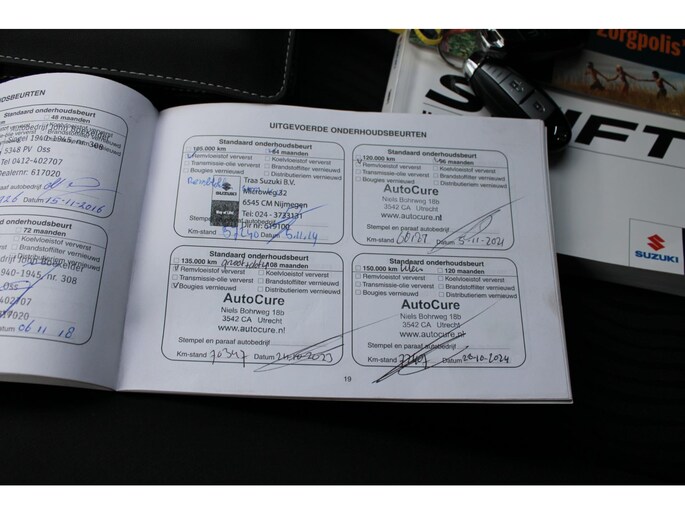 DSBEURTEN
Standaard onderhoudsbeurt
48 maanden
Koelvloeistof ververst
1940-1945, nr. 308
5348 PV Oss
Tel 0412-402707
ealernr: 617020
Datum 15-11-2016
onderhoudsbeurt
72 maanden
Koelvloeistof ververst
Brandstoffilter vernieuwd
940-1945, nr. 308
402707
617020
Datum 06 11 18
UITGEVOERDE ONDERHOUDSBEURTEN
Standaard onderhoudsbeurt
105.000 km 84 maanden
Remvloeistof ververst Koelvloeistof ververst
Transmissie-olie ververst Brandstoffilter vernieuwd
Bougies vernieuwd Distributieriem vernieuwd
Traa Suzuki B.V.
Microweg 22
6545 CM Nijmegen
Tel: 024 - 3733131
Dlr nr: 619100
SUZUKI
Way of Life!
Stempel en paraaf autobedrijf
Km-stand 57240 Datum
Standaard onderhoudsbeurt
120.000 km 96 maanden
Remvloeistof ververst Koelvloeistof ververst
Transmissie-olie ververst Brandstoffilter vernieuwd
Bougies vernieuwd Distributieriem vernieuwd
AutoCure
Niels Bohrweg 18b
3542 CA Utrecht
www.autocure.nl
Stempel en paraaf autobedrijf
Km-stand Datum 5-11-2021
Standaard onderhoudsbeurt
135.000 km grootonderh 108 maanden
Remvloeistof ververst Koelvloeistof ververst
Transmissie-olie ververst Brandstoffilter vernieuwd
Bougies vernieuwd Distributieriem vernieuwd
AutoCure
Niels Bohrweg 18b
3542 CA Utrecht
www.autocure.nl
Stempel en paraaf autobedrijf
Km-stand 70347 Datum 24-10-2023
Standaard onderhoudsbeurt
150.000 km klein 120 maanden
Remvloeistof ververst Koelvloeistof ververst
Transmissie-olie ververst Brandstoffilter vernieuwd
Bougies vernieuwd Distributieriem vernieuwd
AutoCure
Niels Bohrweg 18b
3542 CA Utrecht
www.autocure.nl
Stempel en paraaf autobedrijf
Km-stand 77407 Datum 28-10-2024
19
Zorgpolis
SWIFT
SUZUKI